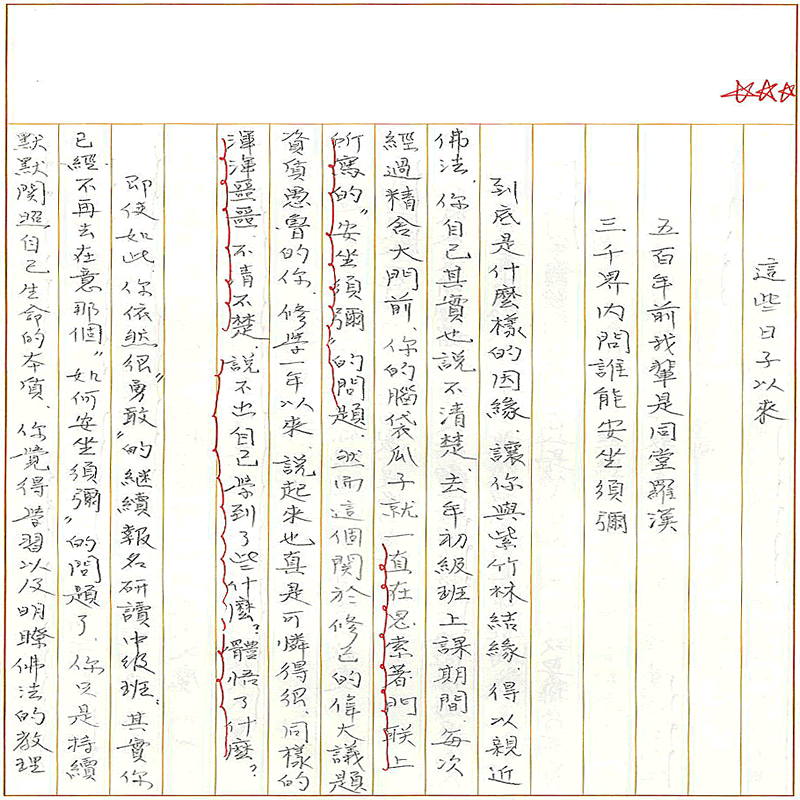 這些日子以來
五百年前我輩是同堂羅漢
三千界內問誰能安坐須彌
到底是什麼樣的因緣、讓你與紫竹林結緣、得以親近
佛法、你自己其實也說不清楚、去年初級班上課期間、每次
經過精舍大門前、你的腦袋瓜子就一直在思索著門联上
所寫的“安坐須彌”的問題、然而這個關於修己的偉大議題
資質愚魯的你、修學一年以來、說起來也真是可憐得很、同樣的
渾渾噩噩、不清不楚、說不出自己學到了些什麼?體悟了什麼?
即使如此、你依然很“勇敢”的繼續報名研讀中級班、其實你
已經不再去在意那個“如何安坐須彌”的問題了、你只是持續
默默関照自己生命的本質、你覺得學習以及明瞭佛法的教理